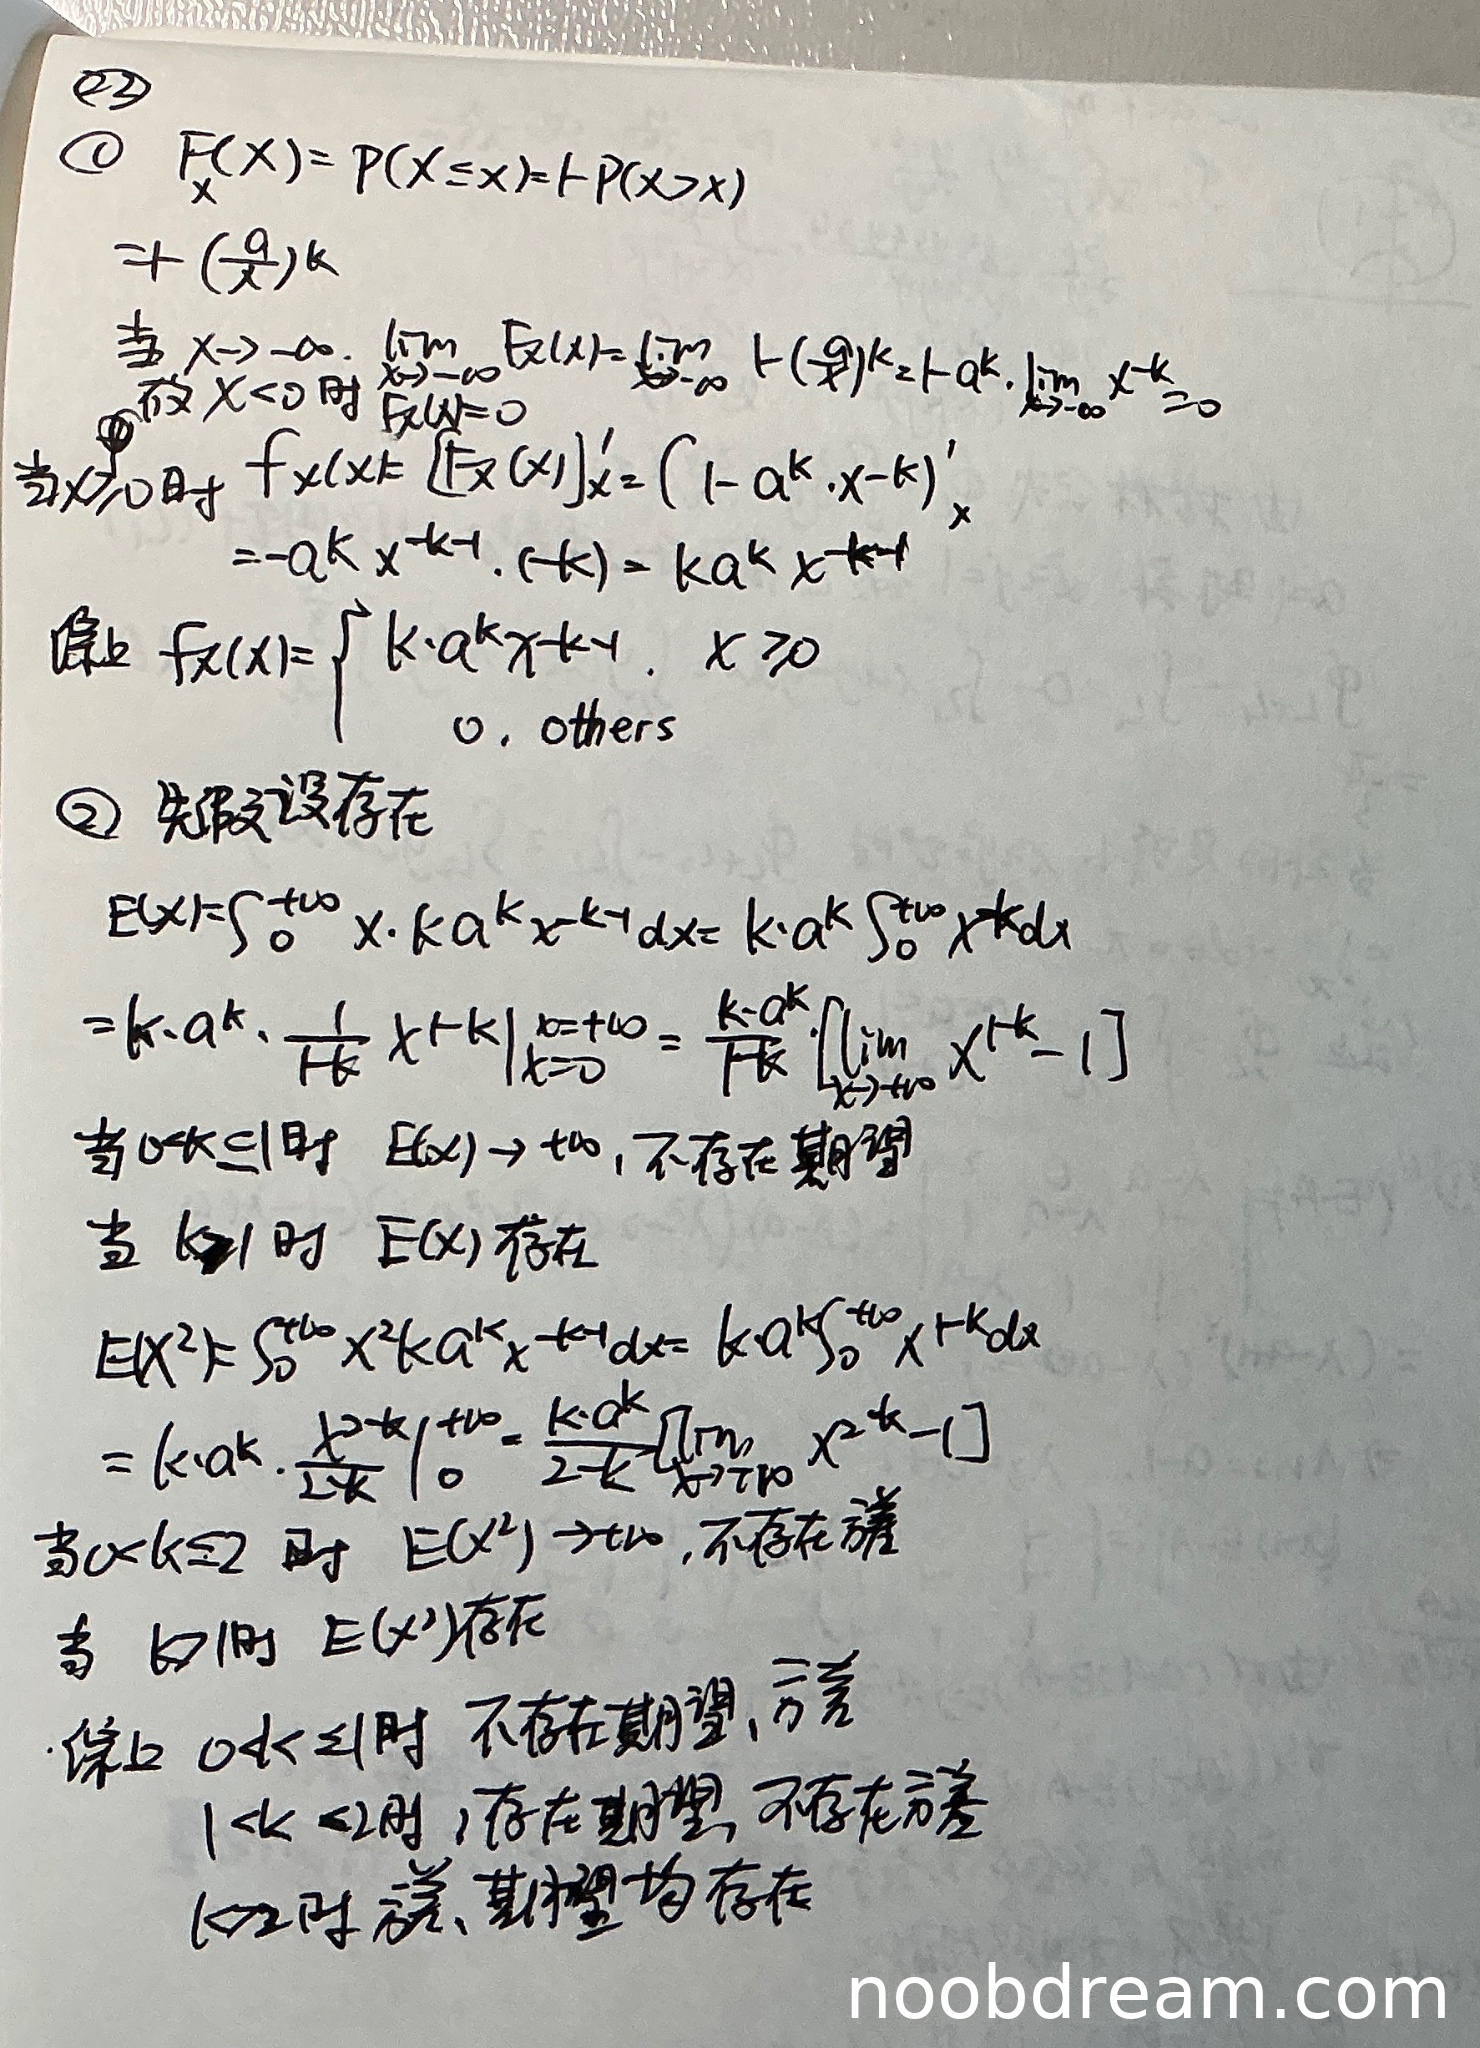 (23)
① F_X(X)=P(X≤x)=1-P(X>x)
=1-(a/x)^k
当 x→-∞. lim_{x→-∞} F_X(x)=lim_{x→-∞} 1-(a/x)^k=1-a^k·lim_{x→-∞} x^{-k}=0
故 X<0 时 F_X(x)=0
当x≥0时 f_X(x)=[F_X(x)]'_x=(1-a^k·x^{-k})'_x
=-a^k x^{-k-1}·(-k)=ka^k x^{-k-1}
综上 f_X(x)={ k·a^k x^{-k-1}. x≥0
0. others
② 先假设存在
E(X)=∫_0^{+∞} x·ka^k x^{-k-1}dx=k·a^k∫_0^{+∞} x^{-k}dx
=k·a^k·\frac{1}{1-k} x^{1-k}|_{x=0}^{x=+∞}=\frac{k·a^k}{1-k}·[lim_{x→+∞} x^{1-k}-1]
当0<k≤1时 E(X)→+∞,不存在期望
当 k>1时 E(X)存在
E(X²)=∫_0^{+∞} x²ka^k x^{-k-1}dx=k·a^k∫_0^{+∞} x^{1-k}dx
=k·a^k·\frac{x^{2-k}}{2-k}|_0^{+∞}=\frac{k·a^k}{2-k}[lim_{x→+∞} x^{2-k}-1]
当0<k≤2 时 E(X²)→+∞,不存在方差
当 k>1时 E(X²)存在
综上 0<k≤1时 不存在期望、方差
1<k≤2时,存在期望,不存在方差
k>2时 方差、期望均存在
noobdream.com